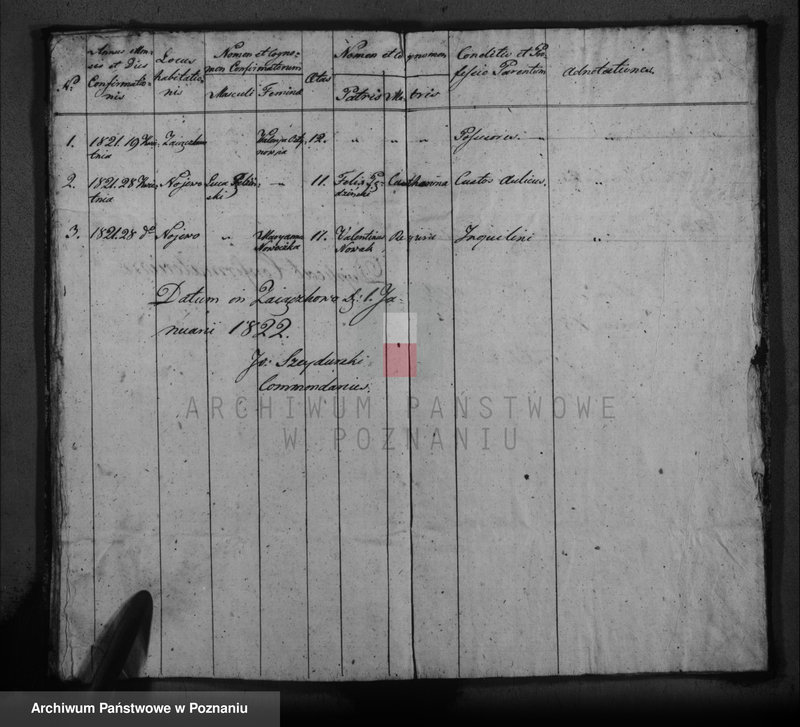 Nr.
Annus Men-
sis et Dies
Confirmatio-
nis
Locus
habitatio-
nis
Nomen et Cogno-
men Confirmatorum
Masculi Femina
Ætas
Nomen et Cognomen
Patris Matris
Conditio et Pro-
fessio Parentum
Adnotationes
1. 1821. 19 Kwie-
tnia
12. " " "
2. 1821. 28 Kwie-
tnia
Nojewo
Luca
ski
" 11. Felix
Catharina Custos Aulicus "
3. 1821. 28 do
Nojewo " Maryanna
11. Valentinus
Nowak
Inquilini "
Datum in Zaiączkowo d: 1. Ja-
nuarii 1822.
Commendarius.
ARCHIWUM PAŃSTWOWE
W POZNANIU
Archiwum Państwowe w Poznaniu